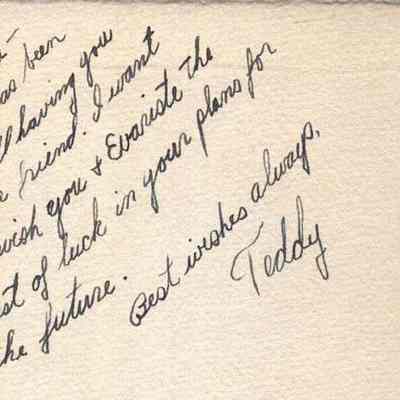 as been
having you
friend. I want
wish you + Evariste the
st of luck in your plans for
the future.
Best wishes always,
Teddy